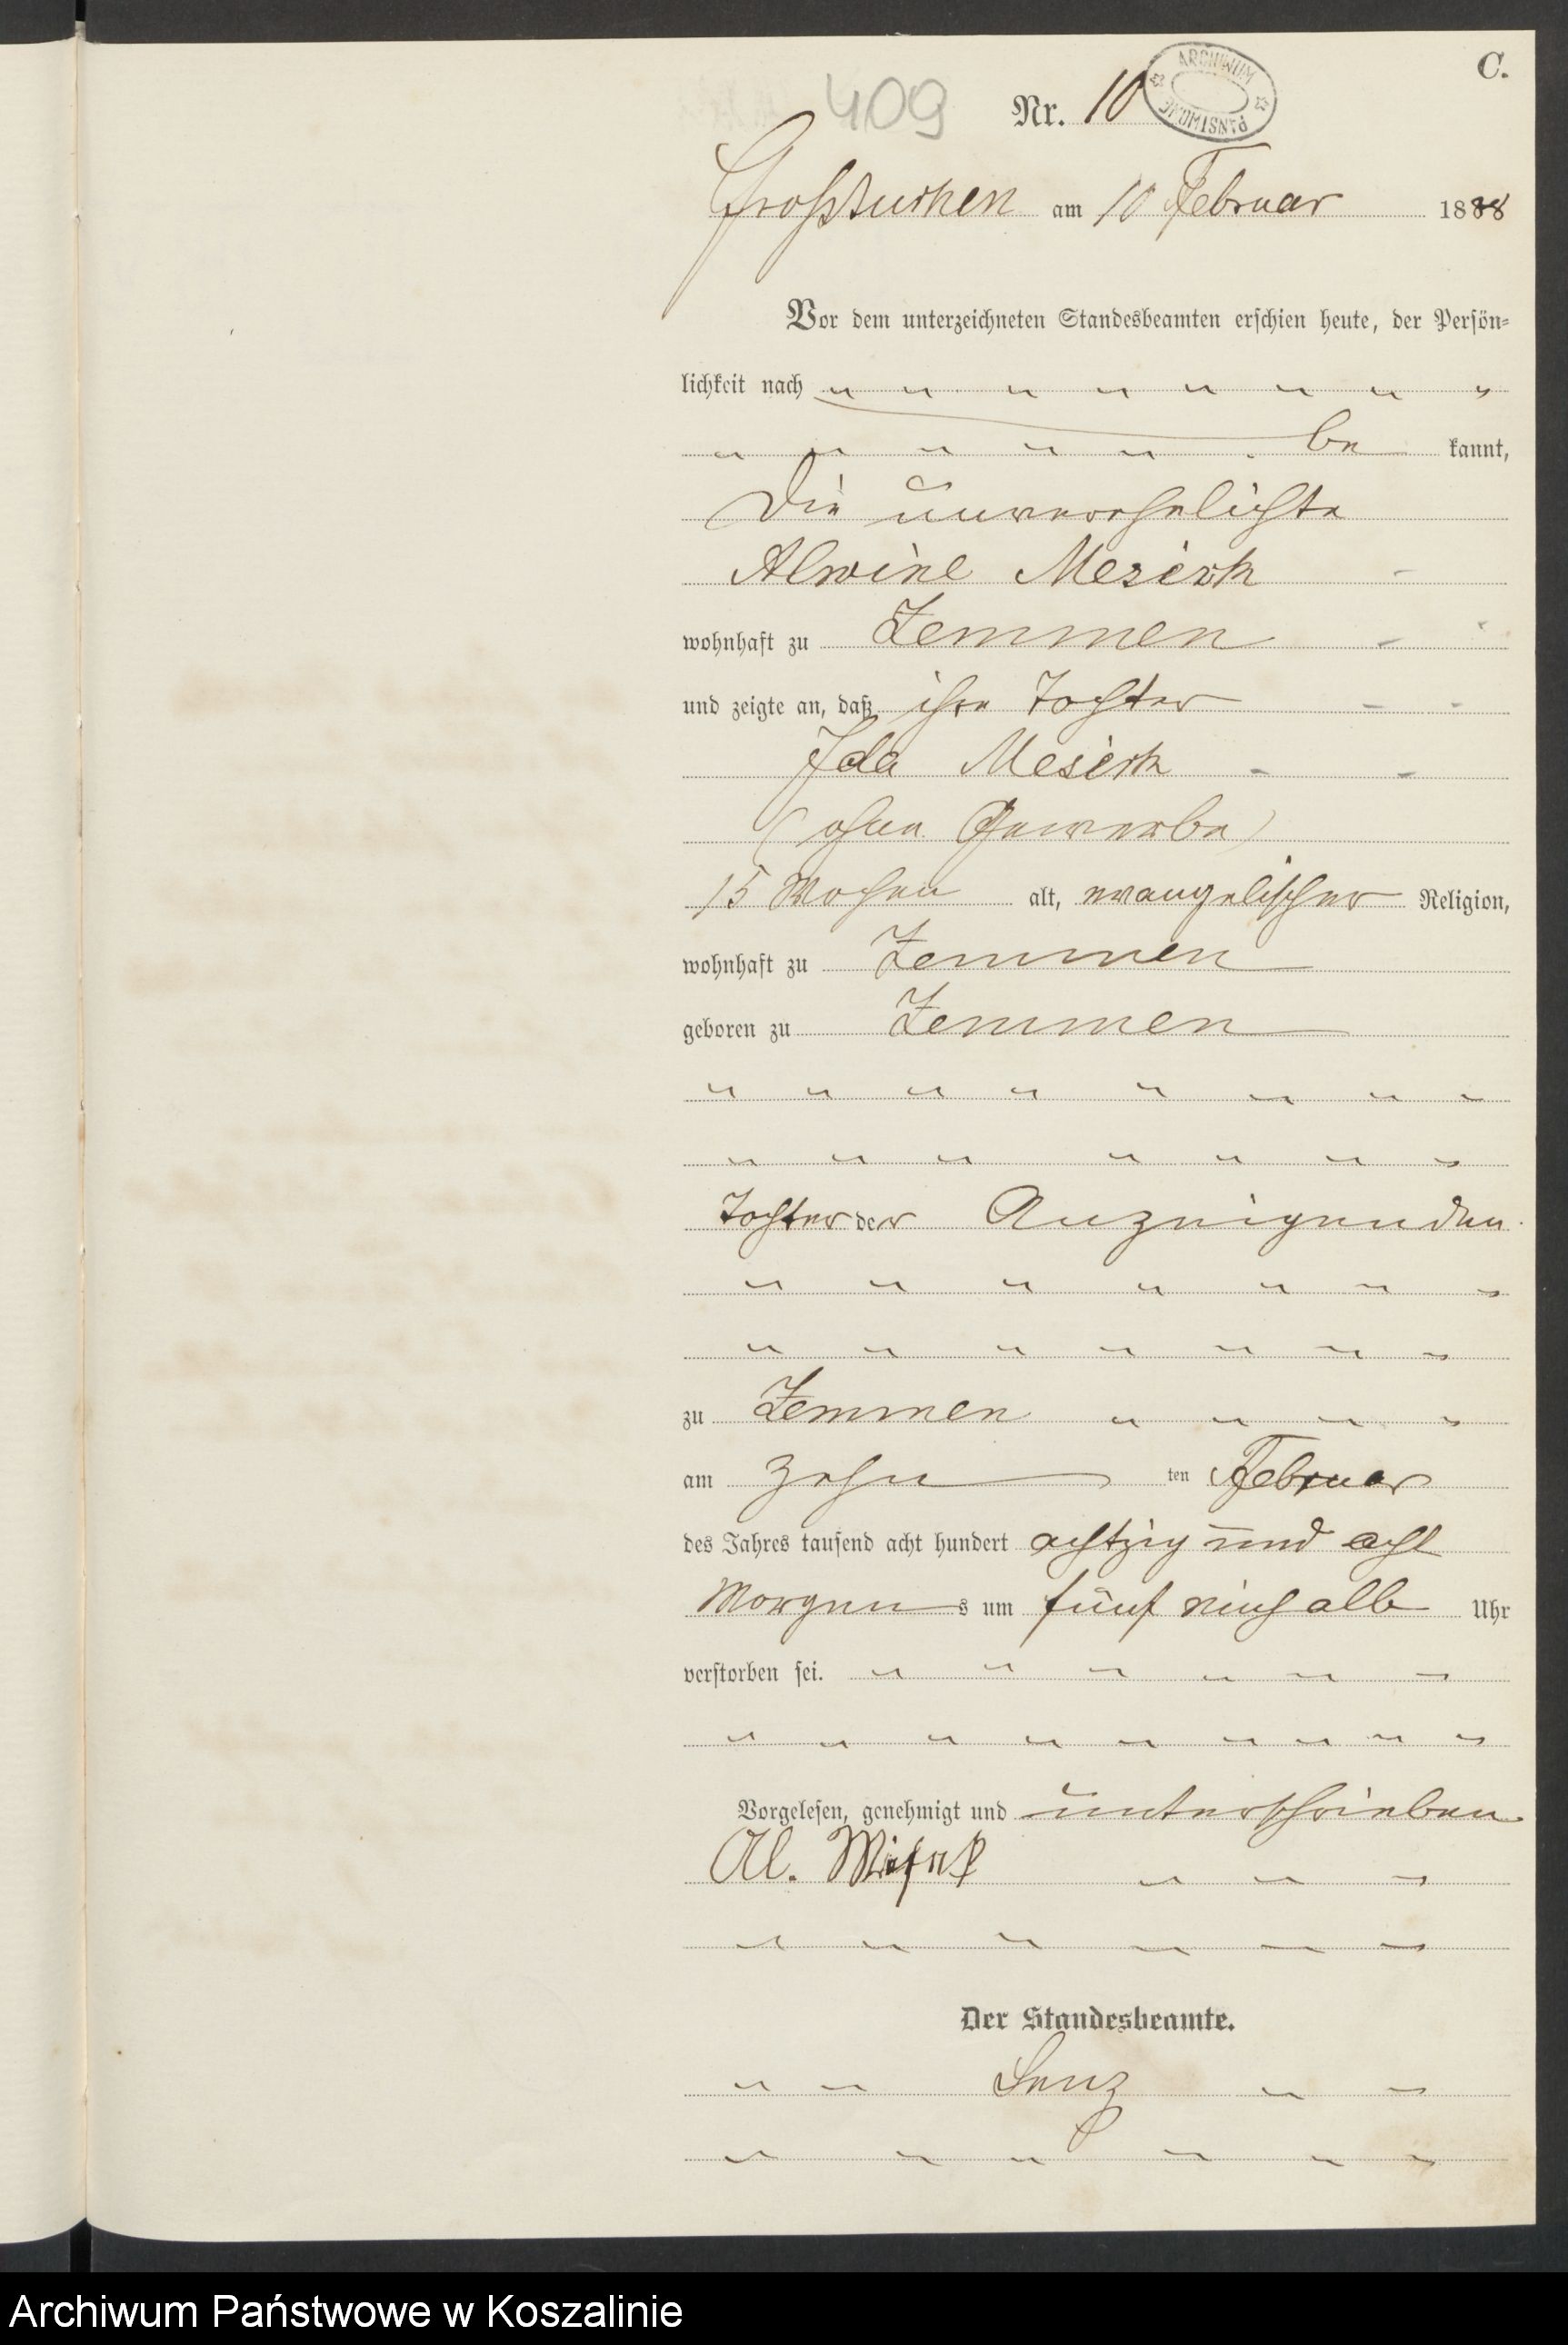 C.
409
Nr. 10
ARCHIWUM PAŃSTWOWE
Großtuchen am 10 Februar 1888
Vor dem unterzeichneten Standesbeamten erschien heute, der Persön-
lichkeit nach
be kannt,
die unverehelichte
Alwine
wohnhaft zu Zemmen
und zeigte an, daß ihre Tochter
Ida
(ohne Gewerbe)
15 Wochen alt, evangelischer Religion,
wohnhaft zu Zemmen
geboren zu Zemmen
Tochter der Anzeigenden
zu Zemmen
am zehn ten Februar
des Jahres tausend acht hundert achtzig und acht
Morgens um fünf einhalb Uhr
verstorben sei.
Vorgelesen, genehmigt und unterschrieben
Al.
Der Standesbeamte.
Lenz
Archiwum Państwowe w Koszalinie